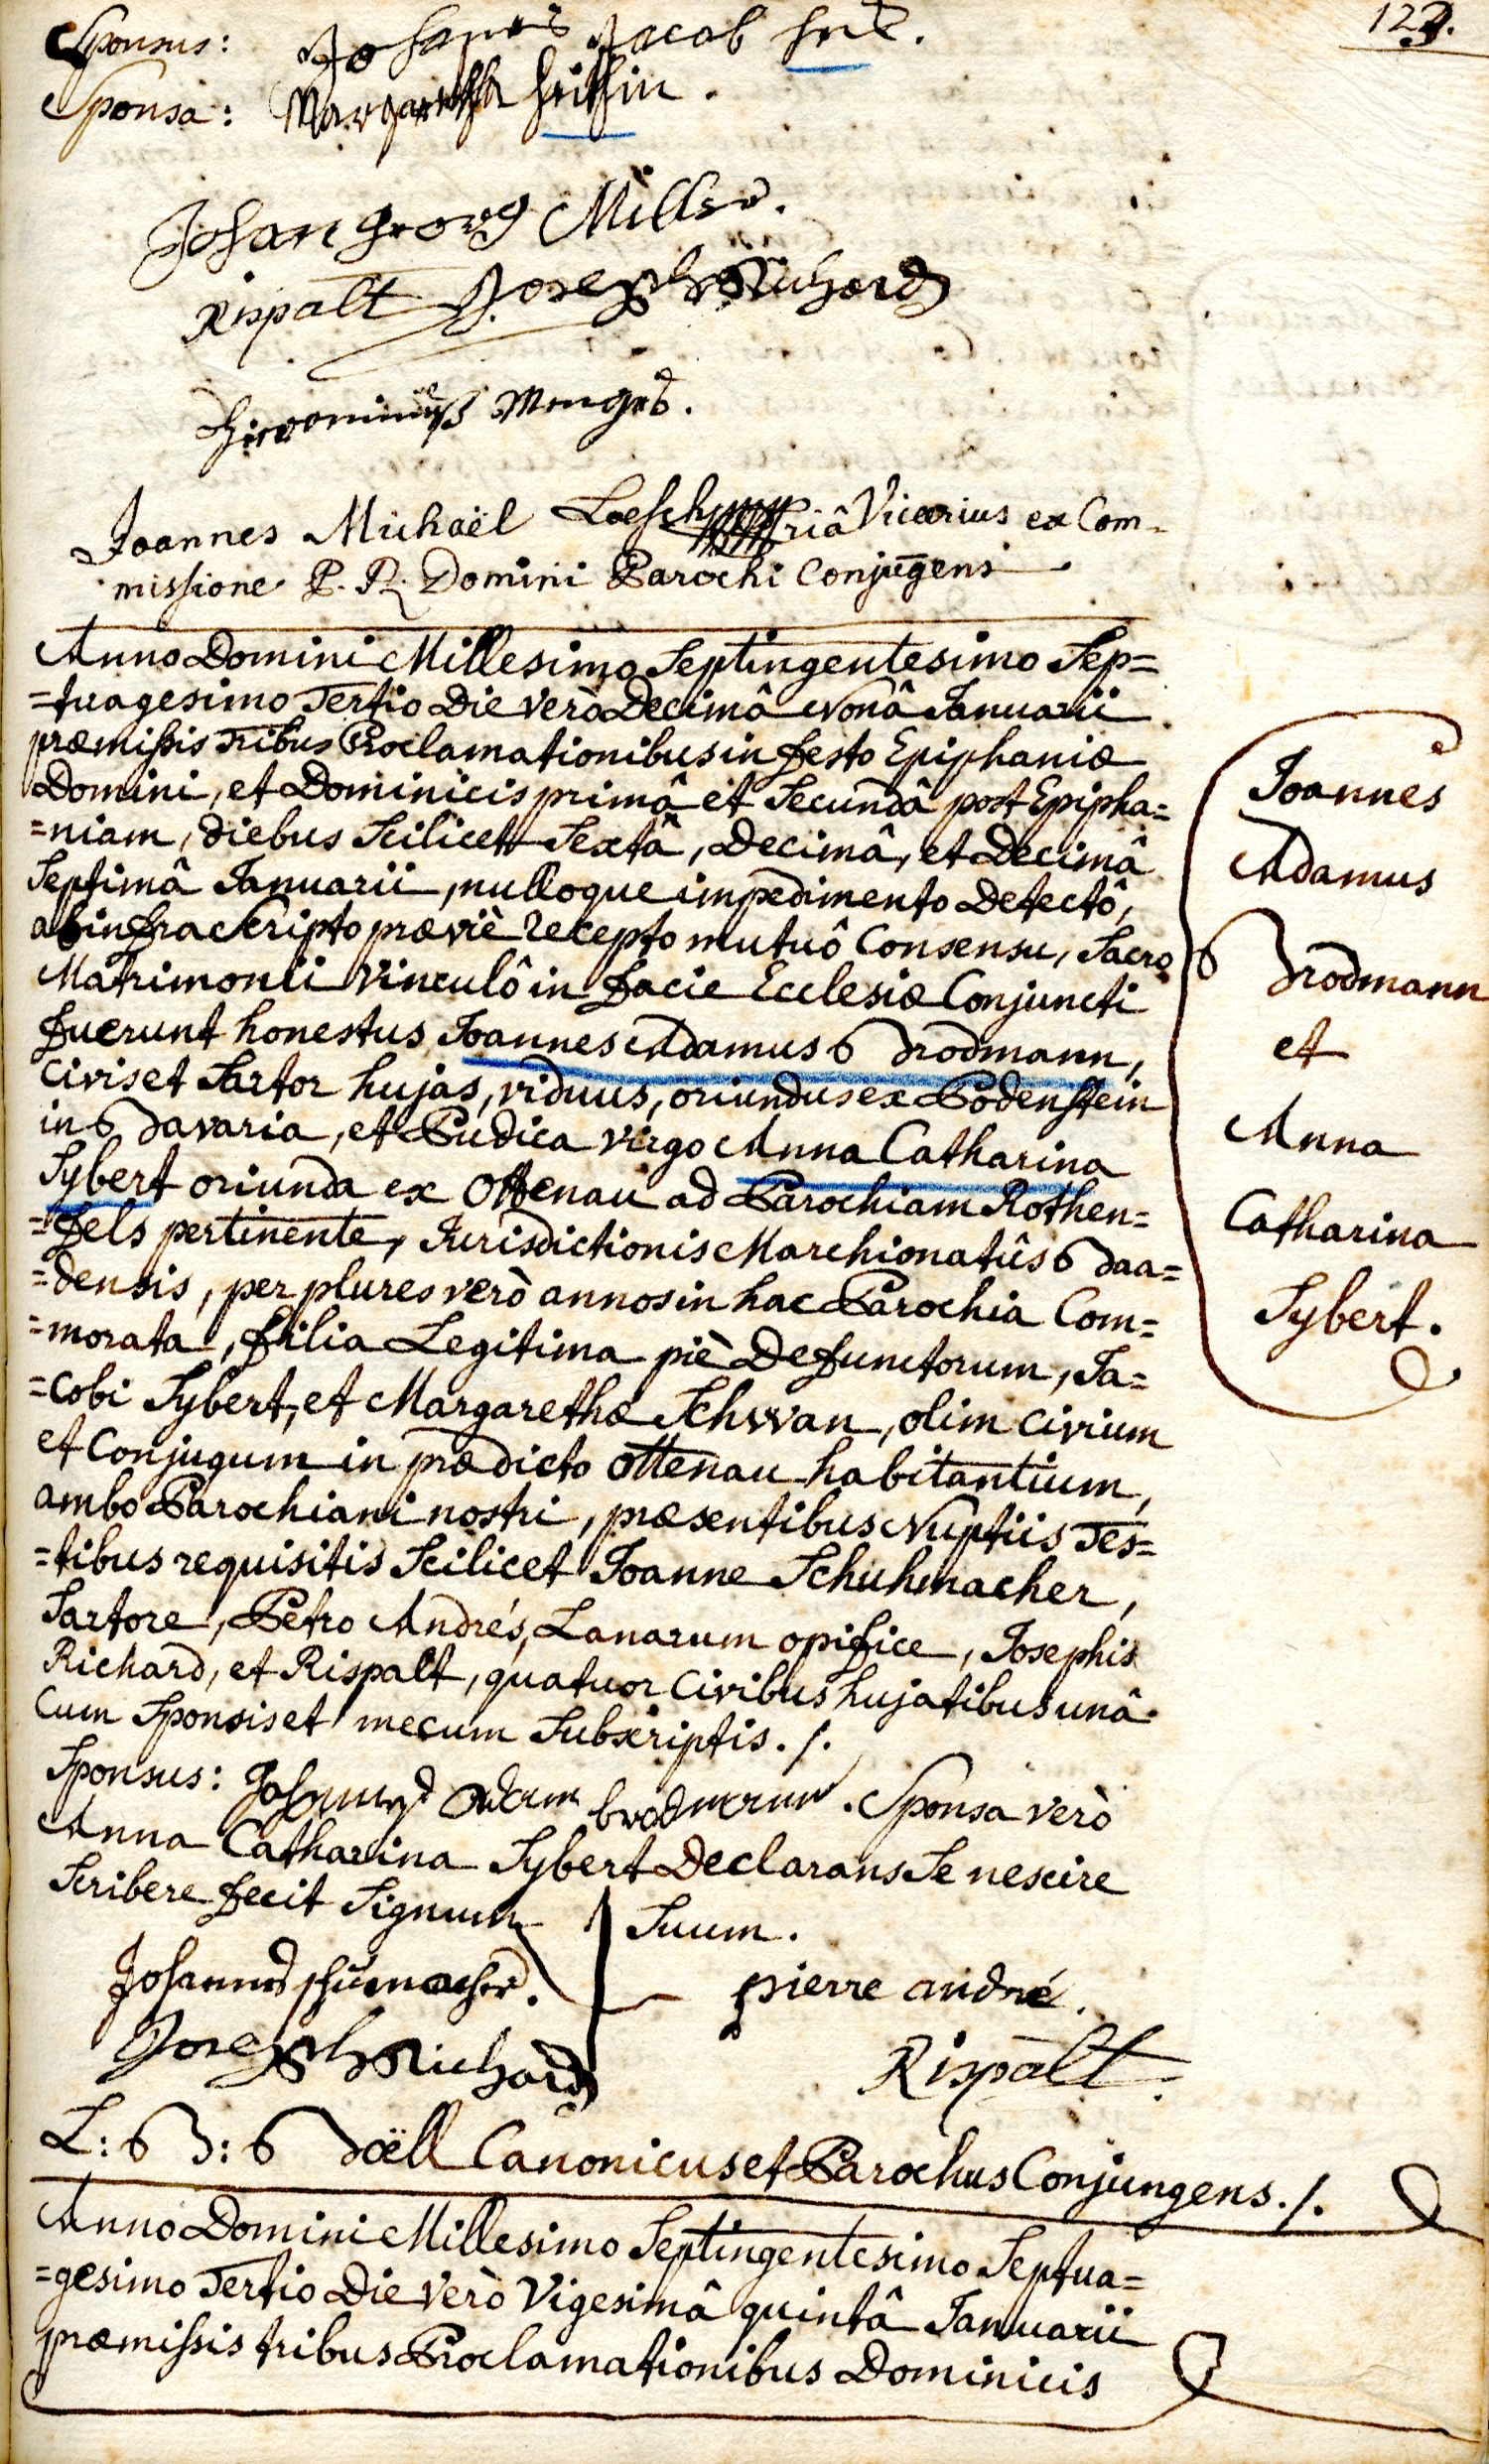 127.
Sponsus: Johannes Jacob
Sponsa: Margaretha
Johan Georg Miller.
Rispalt Joseph Richard
Hieronimus Menges.
Joannes Michaël Loesch Vicarius ex Com-
missione P. R. Domini Parochi Conjūgens
Anno Domini Millesimo Septingentesimo Sep=
=tuagesimo Tertio Die verò Decimâ Nonâ Januarii
præmissis Tribus Proclamationibus in festo Epiphaniæ
Domini, et Dominicis primâ et Secundâ post Epipha=
=niam, diebus Scilicet Sextâ, Decimâ, et Decimâ
Septimâ Januarii, nulloque impedimento Detectô,
ab infra Scripto præviè recepto mutuô Consensu, Sacro
Matrimonii Vinculô in facie Ecclesiæ Conjuncti
fuerunt honestus Joannes Adamus Brodmann,
Civis et Sartor hujas, viduus, oriundus ex Podenstein
in Bavaria, et Pudica virgo Anna Catharina
Sybert oriunda ex Ottenau ad Parochiam Rothen=
=fels pertinente, Jurisdictionis Marchionatûs Baa=
=densis, per plures verò annos in hac Parochia Com=
=morata, filia Legitima piè Defunctorum, Ja=
=cobi Sybert, et Margarethæ Schwan, olim Civium
et Conjugum in prædicto Ottenau habitantium,
ambo Parochiani nostri, præsentibus Nuptiis Tes=
=tibus requisitis Scilicet Joanne Schuhmacher,
Sartore, Petro Andrés, Lanarum opifice, Josephis
Richard, et Rispalt, quatuor Civibus hujatibus unâ
Cum Sponsis et mecum Subscriptis. /.
Sponsus: Johannes Adam brodmann. Sponsa verò
Anna Catharina Sybert Declarans Se nescire
Scribere fecit Signum Suum.
Johannes schumacher. pierre andré.
Joseph Richard Rispalt.
L: B: Boëll Canonicus et Parochus Conjungens. /.
Anno Domini Millesimo Septingentesimo Septua=
=gesimo Tertio Die Verò Vigesimâ quintâ Januarii
præmissis tribus Proclamationibus Dominicis
Joannes
Adamus
Brodmann
et
Anna
Catharina
Sybert.